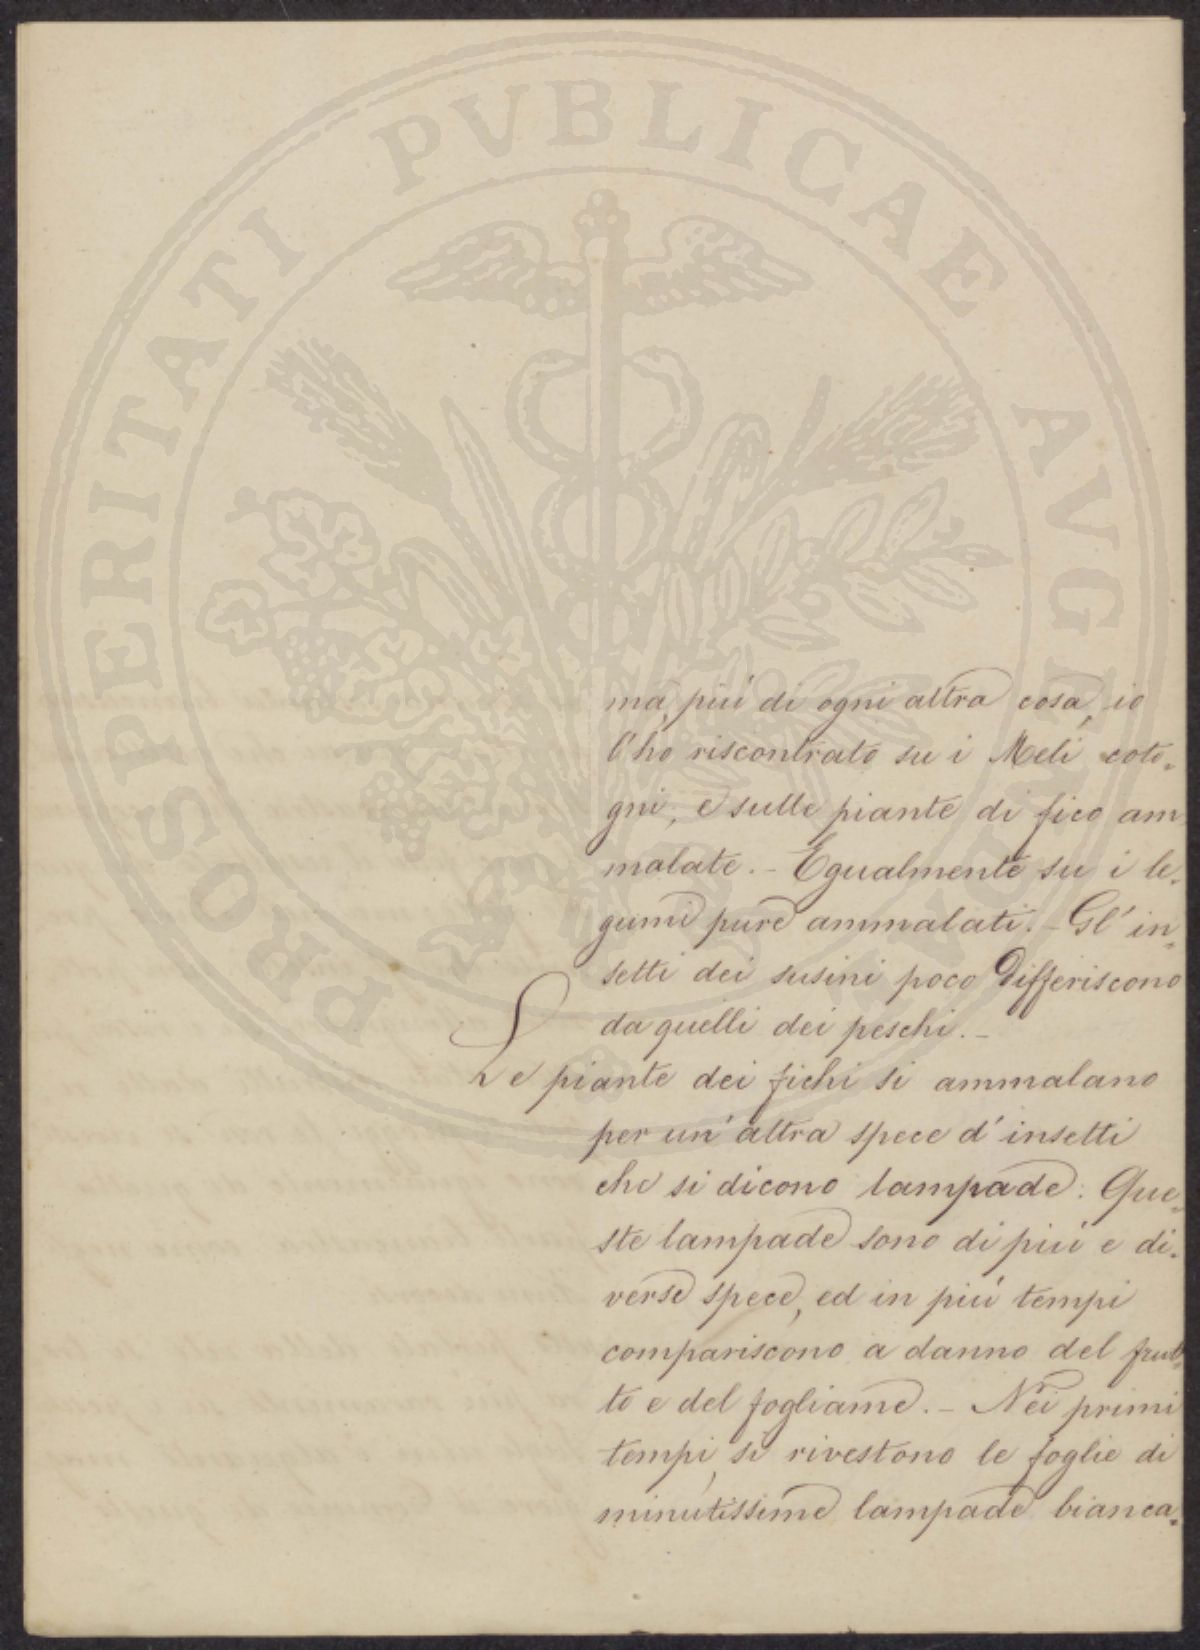 PROSPERITATI PVBLICAE AVGENDAE
ma, più di ogni altra cosa, io
l'ho riscontrato su i Meli coto-
gni, e sulle piante di fico am
malate. - Egualmente su i le-
gumi pure ammalati. - Gl' in-
setti dei susini poco differiscono
da quelli dei peschi. -
Le piante dei fichi si ammalano
per un' altra spece d' insetti
che si dicono lampade: Que-
ste lampade sono di più e di-
verse spece, ed in più tempi
compariscono a danno del frut-
to e del fogliame. - Nei primi
tempi, si rivestono le foglie di
minutissime lampade bianca-